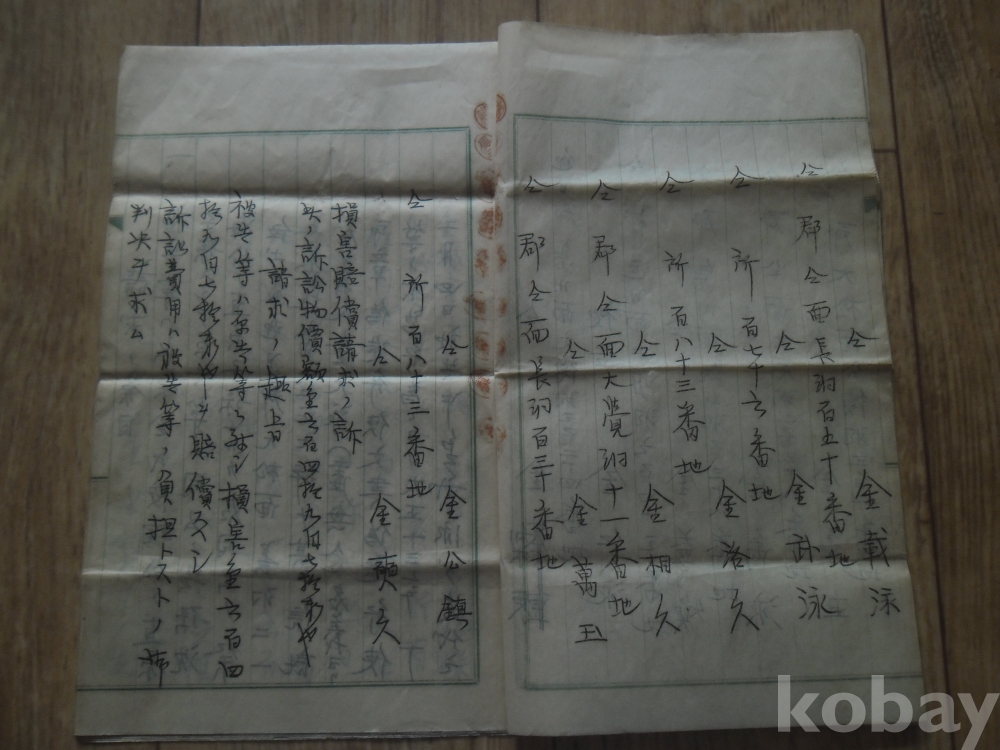 仝 金載泳
仝郡仝面長羽百五十番地
仝 金 泳
仝所百七十六番地
仝 金洛久
仝所百八十三番地
仝 金相久
仝郡仝面大覺洞十一番地
仝 金萬玉
仝郡仝面長羽百三十番地
仝 金公鎭
仝所百八十三番地
仝 金 久
損害賠償請求ノ訴
訴訟物價額金六百四拾九円七拾
請求ノ趣旨
被告等ハ原告等ニ對シ損害金六百四
拾九円七拾 ヲ賠償スベシ
訴訟費用ハ被告等ノ負担トストノ
判決ヲ求ム
kobay